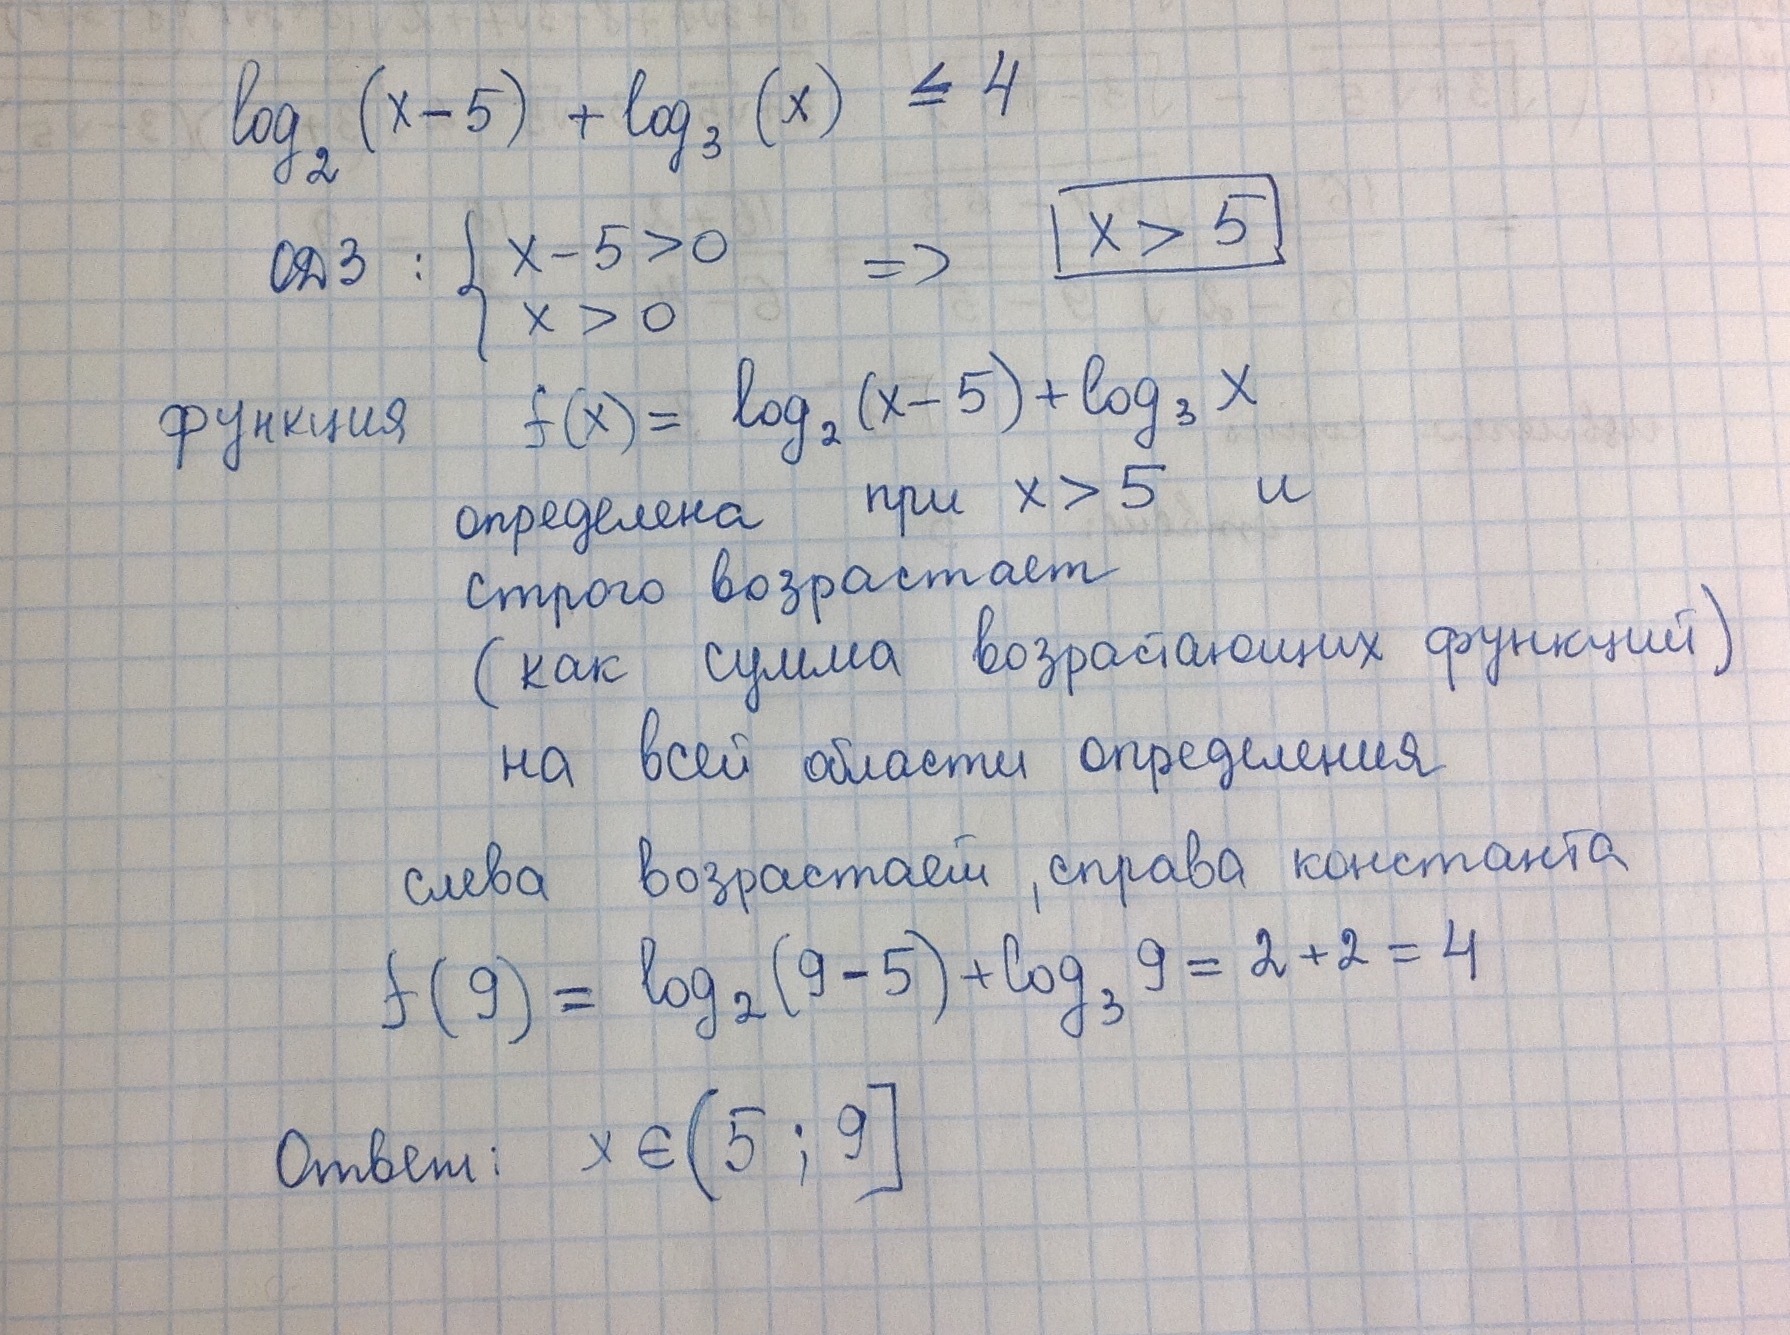 log₂(x-5) + log₃(x) ≤ 4
ОДЗ : { x-5>0 => x > 5
x > 0
функция f(x) = log₂(x-5)+log₃ x
определена при x>5 и
строго возрастает
(как сумма возрастающих функций)
на всей области определения
слева возрастает, справа константа
f(9) = log₂(9-5)+log₃ 9 = 2+2=4
Ответ: x ∈ (5 ; 9]